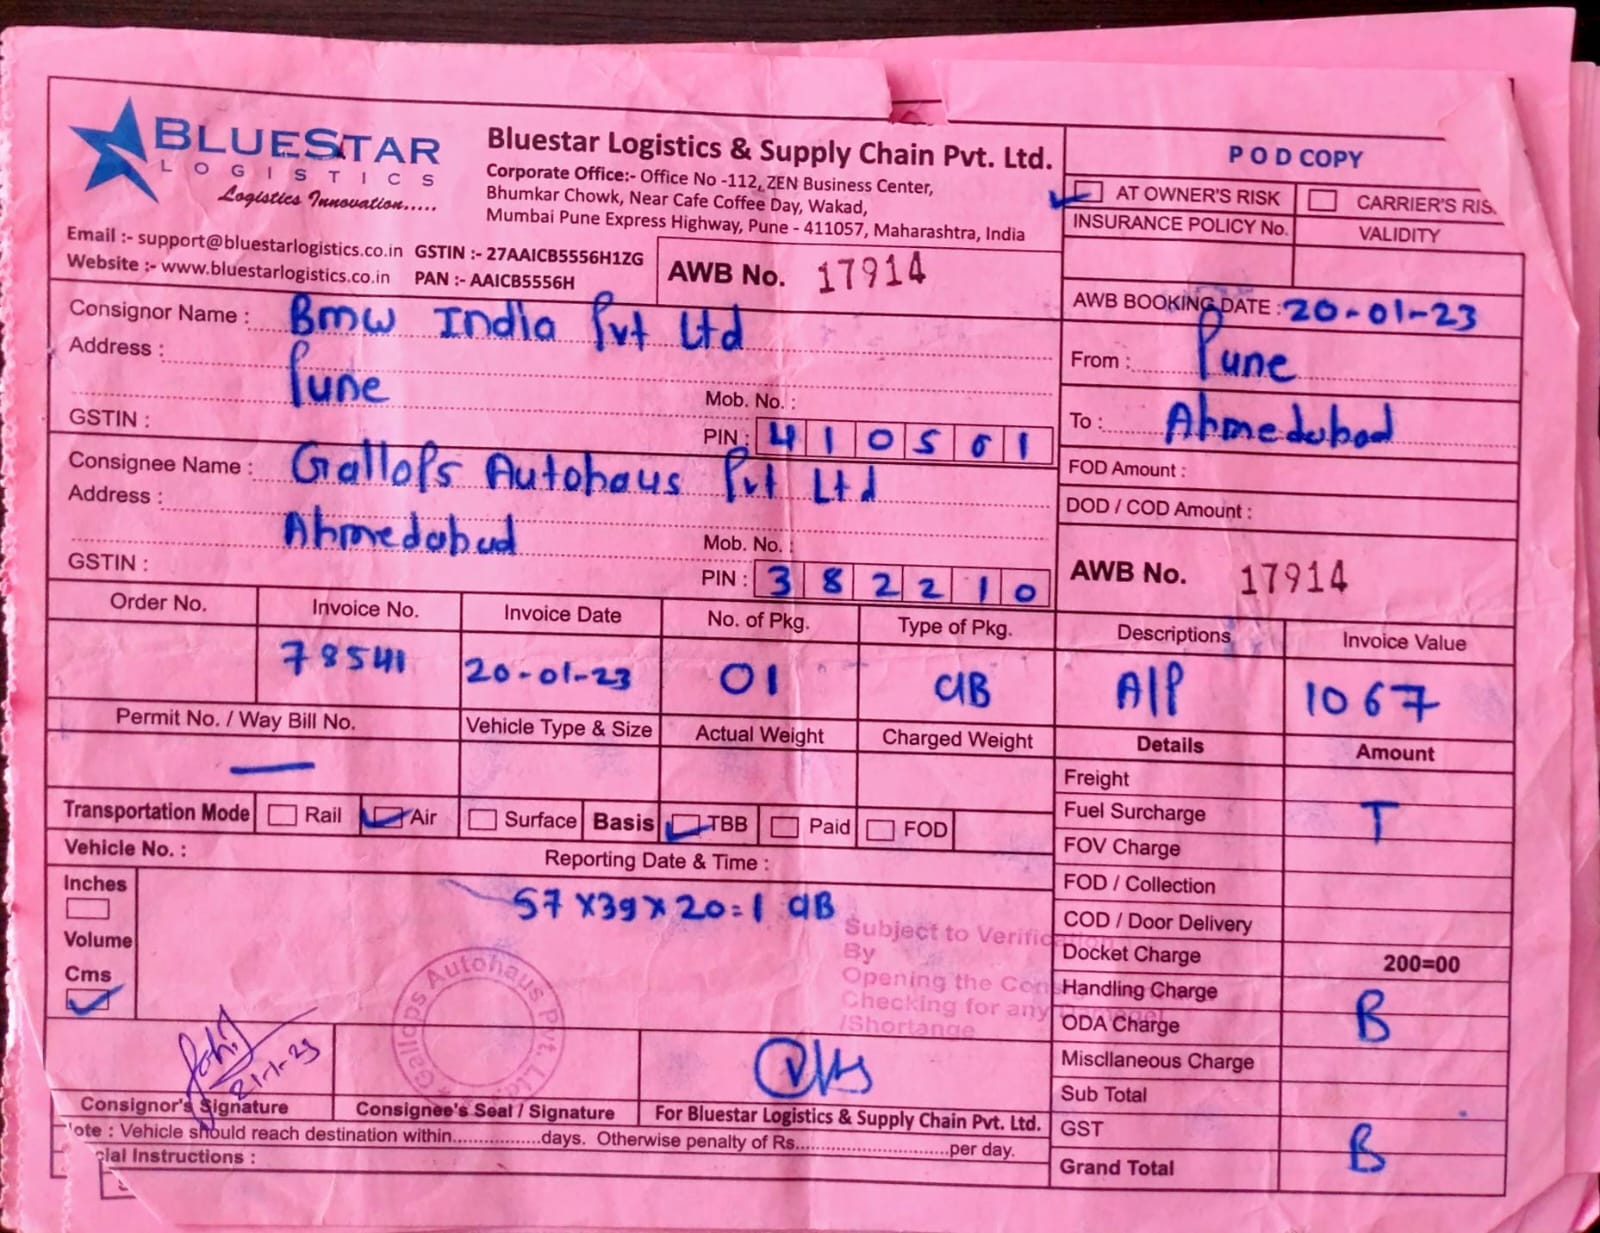 BLUESTAR
LOGISTICS
Logistics Innovation.....
Bluestar Logistics & Supply Chain Pvt. Ltd.
Corporate Office:- Office No -112, ZEN Business Center,
Bhumkar Chowk, Near Cafe Coffee Day, Wakad,
Mumbai Pune Express Highway, Pune - 411057, Maharashtra, India
Email :- support@bluestarlogistics.co.in GSTIN :- 27AAICB5556H1ZG
Website :- www.bluestarlogistics.co.in PAN :- AAICB5556H
AWB No. 17914
POD COPY
AT OWNER'S RISK CARRIER'S RIS
INSURANCE POLICY No. VALIDITY
AWB BOOKING DATE : 20-01-23
From : Pune
To : Ahmedabad
FOD Amount :
DOD / COD Amount :
AWB No. 17914
Consignor Name : Bmw India Pvt Ltd
Address :
Pune
Mob. No. :
GSTIN :
PIN : 410501
Consignee Name : Gallops Autohaus Pvt Ltd
Address :
Ahmedabad
Mob. No. :
GSTIN :
PIN : 382210
Order No. Invoice No. Invoice Date No. of Pkg. Type of Pkg. Descriptions Invoice Value
78541 20-01-23 01 CIB A/P 1067
Permit No. / Way Bill No. Vehicle Type & Size Actual Weight Charged Weight Details Amount
—
Transportation Mode Rail Air Surface Basis TBB Paid FOD
Vehicle No. : Reporting Date & Time :
Inches
Volume
Cms
57x39x20=1 CIB
Subject to Verific
By
Opening the Con
Checking for any
/Shortange
Gallops Autohaus Pvt. Ltd.
Freight
Fuel Surcharge T
FOV Charge
FOD / Collection
COD / Door Delivery
Docket Charge 200=00
Handling Charge
ODA Charge B
Miscllaneous Charge
Sub Total
GST
B
Grand Total
21-1-23
Consignor's Signature Consignee's Seal / Signature For Bluestar Logistics & Supply Chain Pvt. Ltd.
ote : Vehicle should reach destination within.................days. Otherwise penalty of Rs..............................per day.
ial Instructions :